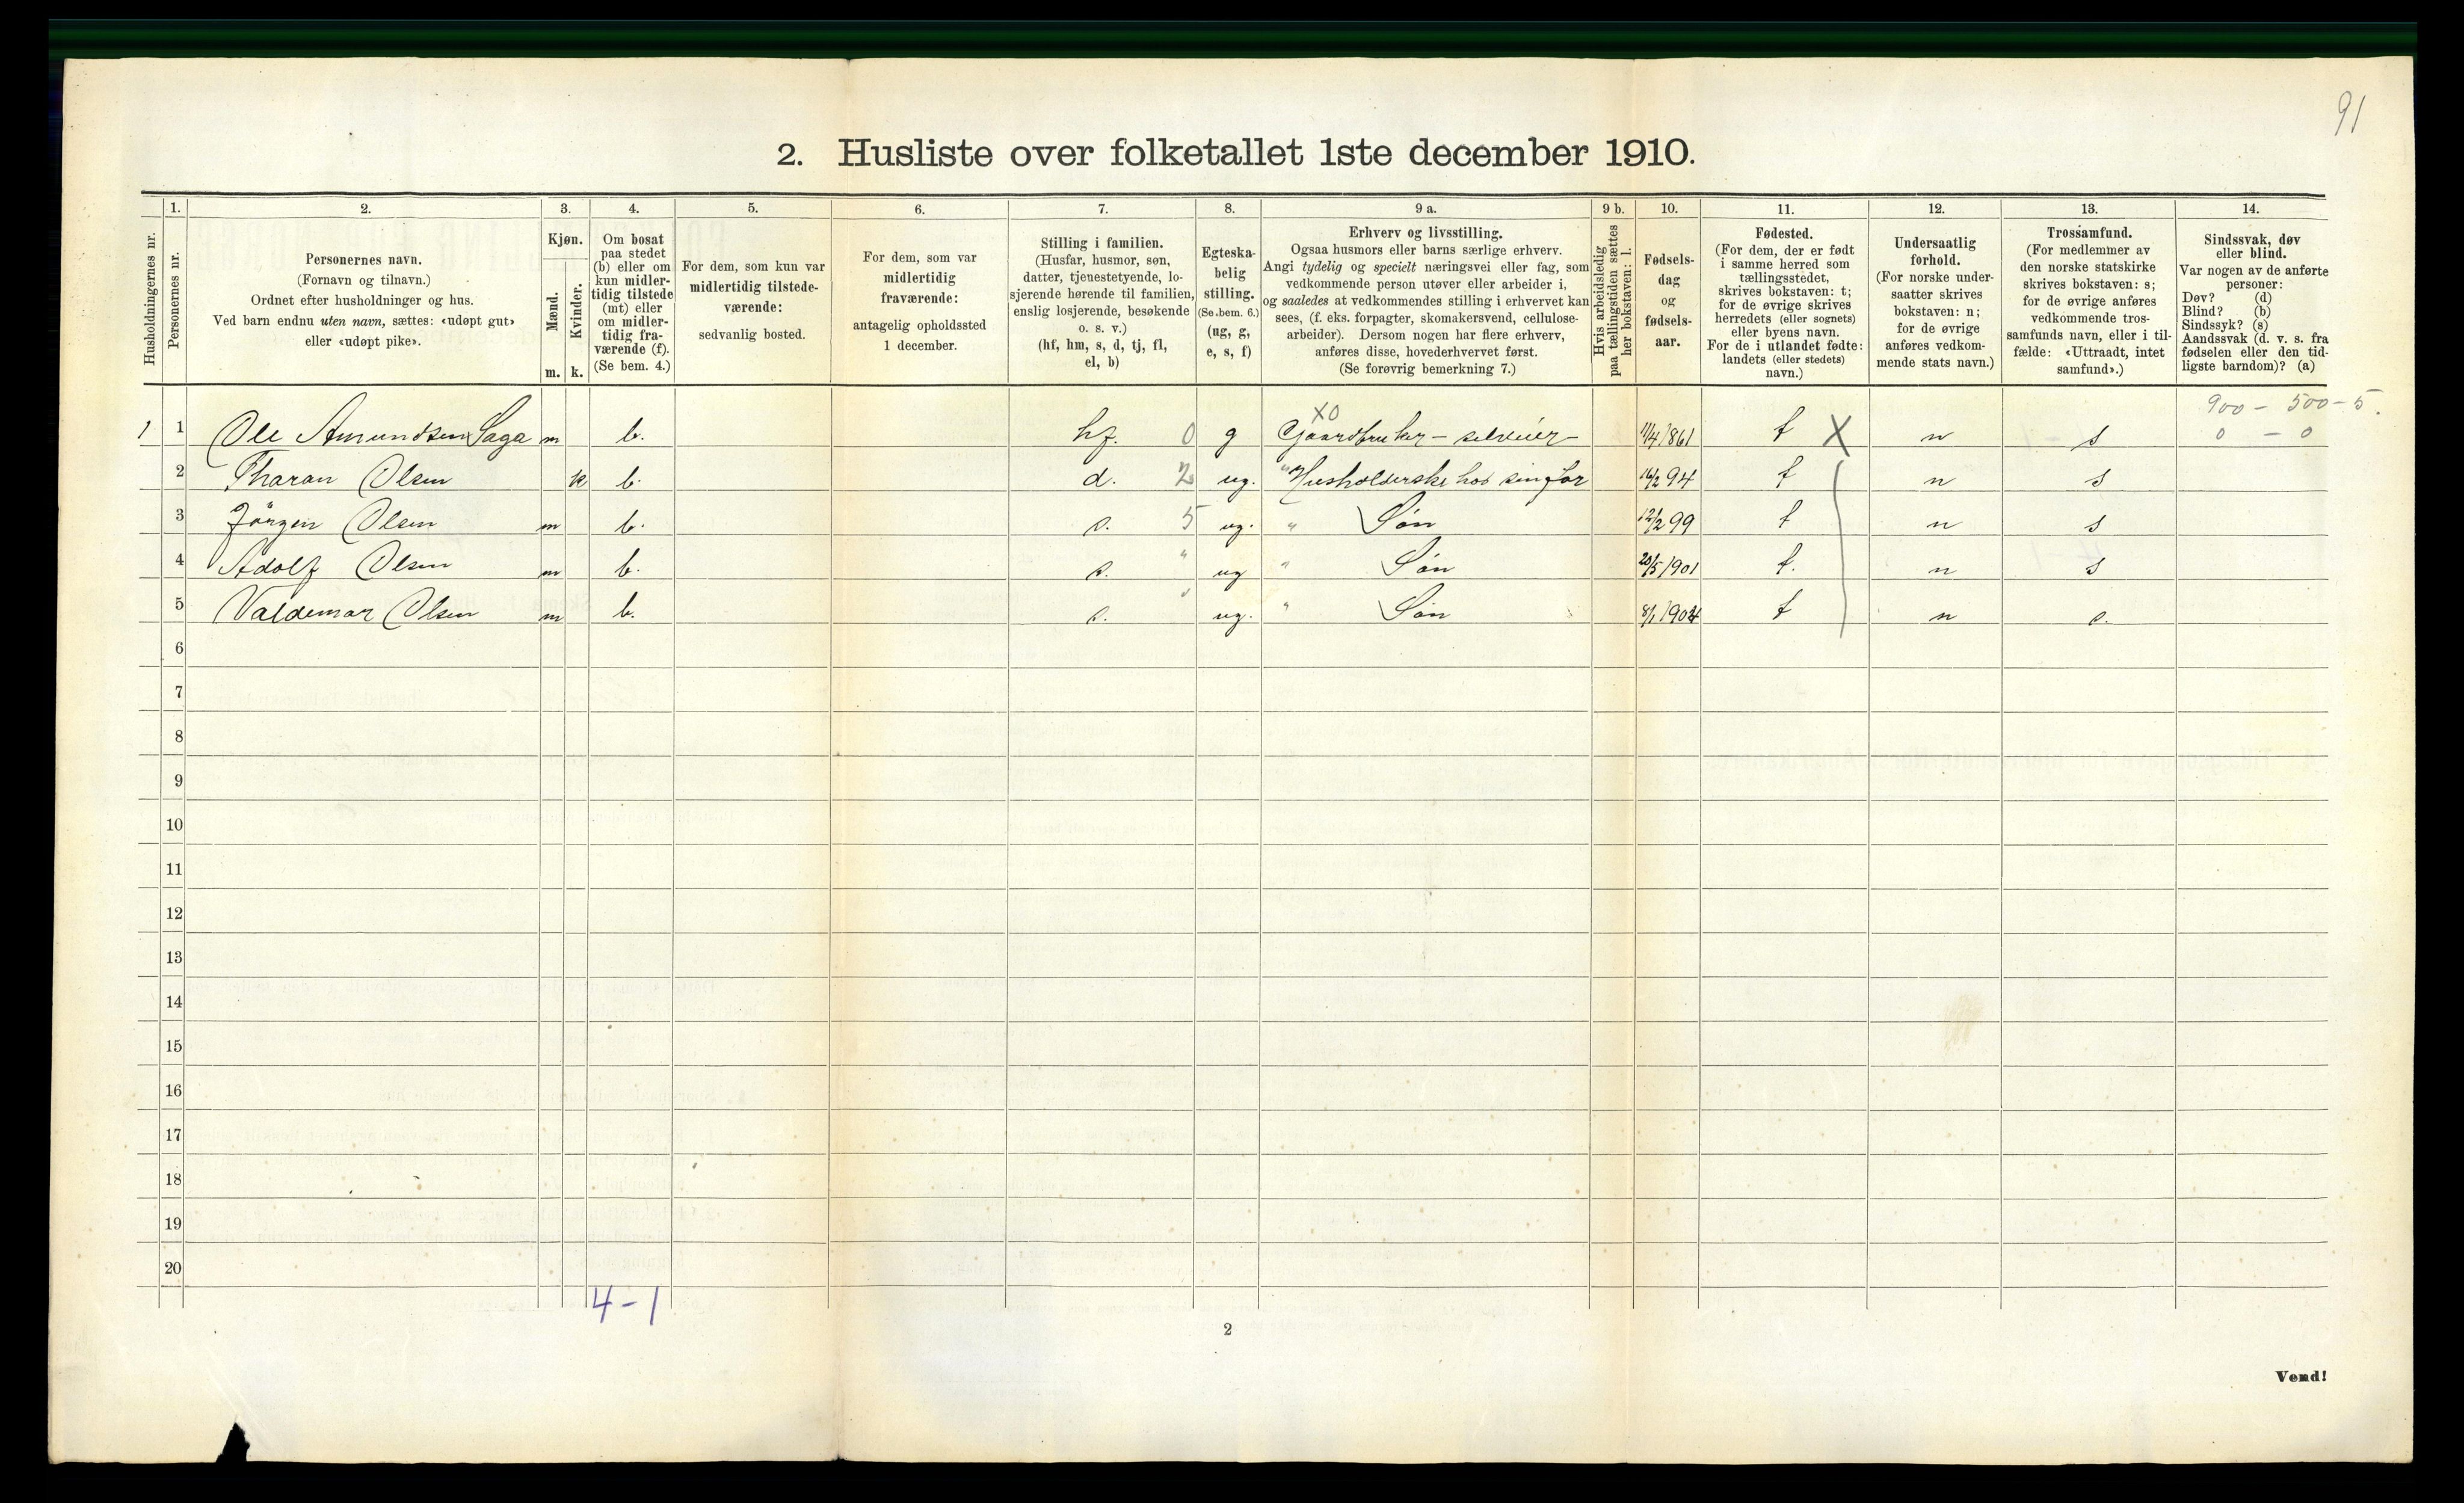 91
2. Husliste over folketallet 1ste december 1910.
1. 2. 3. 4. 5. 6. 7. 8. 9 a. 9 b. 10. 11. 12. 13. 14.
Husholdningernes nr.
Personernes nr.
Personernes navn.
(Fornavn og tilnavn.)
Ordnet efter husholdninger og hus.
Ved barn endnu uten navn, sættes: «udøpt gut»
eller «udøpt pike».
Kjøn.
Mænd.
Kvinder.
m. k.
Om bosat
paa stedet
(b) eller om
kun midler-
tidig tilstede
(mt) eller
om midler-
tidig fra-
værende (f).
(Se bem. 4.)
For dem, som kun var
midlertidig tilstede-
værende:
sedvanlig bosted.
For dem, som var
midlertidig
fraværende:
antagelig opholdssted
1 december.
Stilling i familien.
(Husfar, husmor, søn,
datter, tjenestetyende, lo-
sjerende hørende til familien,
enslig losjerende, besøkende
o. s. v.)
(hf, hm, s, d, tj, fl,
el, b)
Egteska-
belig
stilling.
(Se bem. 6.)
(ug, g,
e, s, f)
Erhverv og livsstilling.
Ogsaa husmors eller barns særlige erhverv.
Angi tydelig og specielt næringsvei eller fag, som
vedkommende person utøver eller arbeider i,
og saaledes at vedkommendes stilling i erhvervet kan
sees, (f. eks. forpagter, skomakersvend, cellulose-
arbeider). Dersom nogen har flere erhverv,
anføres disse, hovederhvervet først.
(Se forøvrig bemerkning 7.)
Hvis arbeidsledig
paa tællingstiden sættes
her bokstaven: l.
Fødsels-
dag
og
fødsels-
aar.
Fødested.
(For dem, der er født
i samme herred som
tællingsstedet,
skrives bokstaven: t;
for de øvrige skrives
herredets (eller sognets)
eller byens navn.
For de i utlandet fødte:
landets (eller stedets)
navn.)
Undersaatlig
forhold.
(For norske under-
saatter skrives
bokstaven: n;
for de øvrige
anføres vedkom-
mende stats navn.)
Trossamfund.
(For medlemmer av
den norske statskirke
skrives bokstaven: s;
for de øvrige anføres
vedkommende tros-
samfunds navn, eller i til-
fælde: «Uttraadt, intet
samfund».)
Sindssvak, døv
eller blind.
Var nogen av de anførte
personer:
Døv? (d)
Blind? (b)
Sindssyk? (s)
Aandssvak (d. v. s. fra
fødselen eller den tid-
ligste barndom)? (a)
X0 900 - 500 - 5.
1 1 Ole Amundsen Saga m b. hf. 0 g Gaardbruker - selveier - 11/4 1861 t X n s 0 - 0
2 Tharan Olsen k b. d. 2 ug. " Husholderske hos sin far 16/2 94 t n s
3 Jörgen Olsen m b. s. 5 ug. " Søn 12/2 99 t n s
4 Adolf Olsen m b. s. " ug " Søn 20/5 1901 t. n s
5 Valdemar Olsen m b. s. " ug. " Søn 8/1 1904 t n s.
6
7
8
9
10
11
12
13
14
15
16
17
18
19
20
4 - 1
2
Vend!